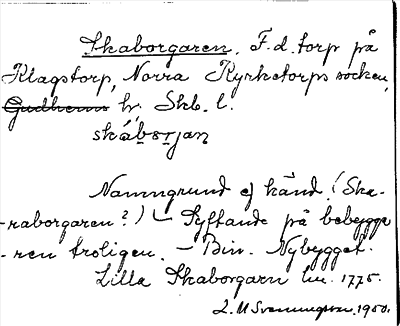 Skaborgaren. F. d. torp på
Klagstorp, Norra Kyrketorps socken,
Gudhems hr. Skb. l.
skábɔrjan
Namngrund ej känd. (Ska-
-raborgaren?) – Syftande på bebygga-
-ren troligen. – Bin. Nybygget.
Lilla Skaborgarn hu. 1775.
L. M Svenungsson, 1950.